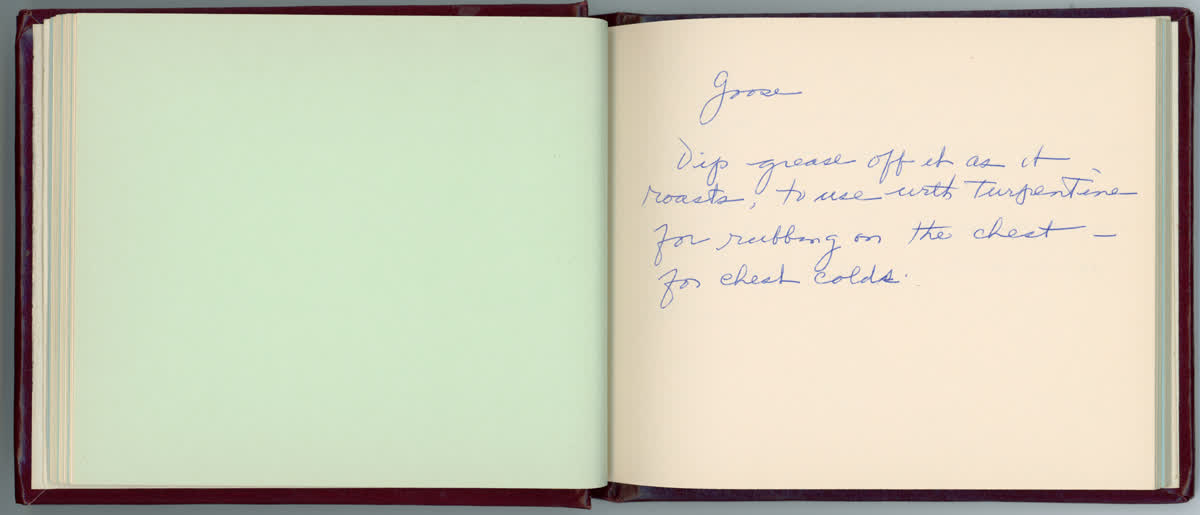 Goose
Dip grease off it as it
roasts, to use with turpentine
for rubbing on the chest –
for chest colds.